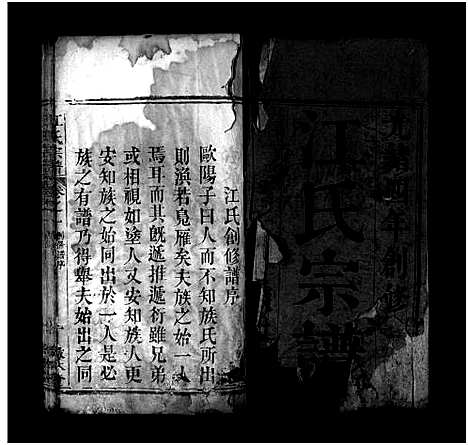 光緒四年創修
江氏宗譜
江氏創修譜序
歐陽子曰人而不知族氏所出
則漁若鳧雁矣夫族之始一人
焉耳而其旣遞推遞衍雖兄弟
或相視如塗人又安知族人更
安知族之始同出於一人是必
族之有譜乃得舉夫始出之同
江氏宗譜卷之